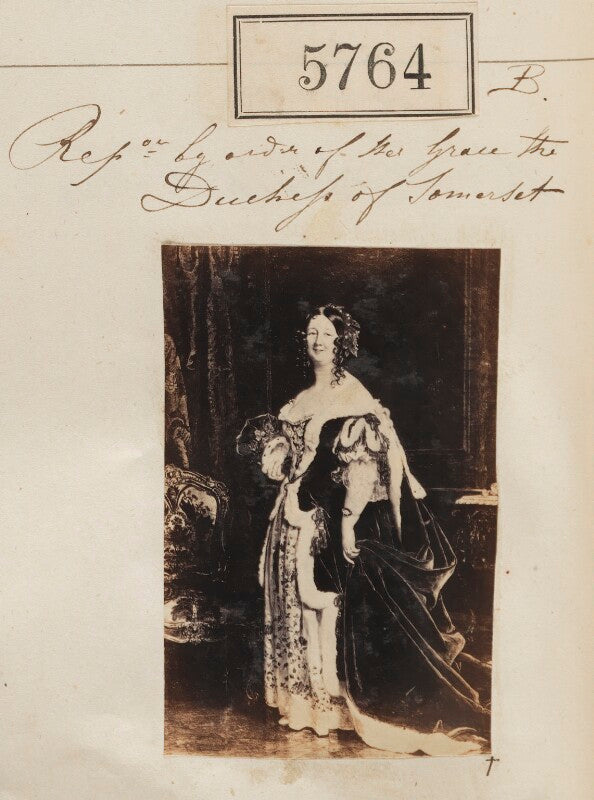 5764
B.
Rep.on by order of Her Grace the
Duchess of Somerset